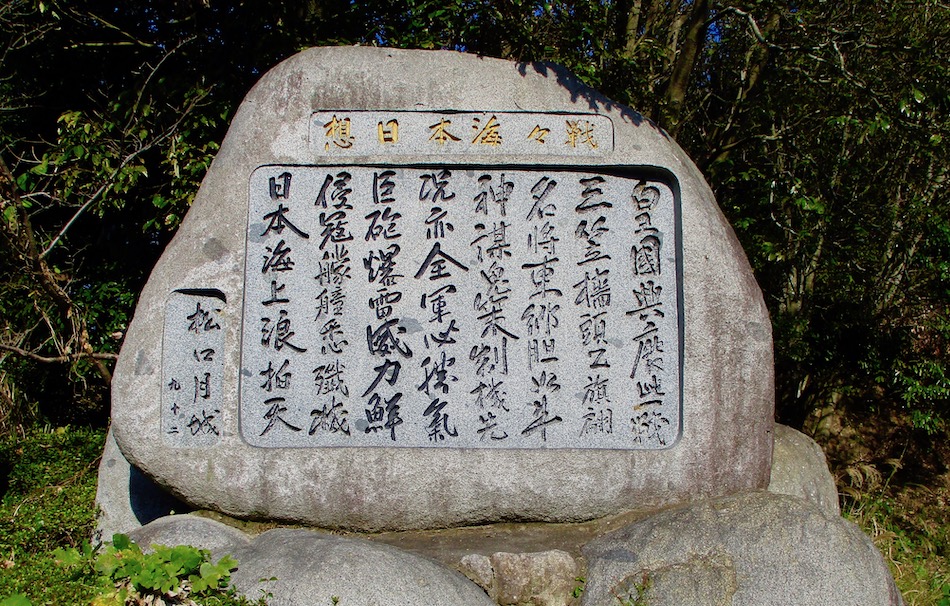 想日本海々戦
皇國興廢此一戦
三笠檣頭Z旗翩
名将東郷胆如斗
神謀鬼策制機先
況亦全軍必勝氣
巨砲爆雷威力鮮
侵寇艨艟悉殲滅
日本海上浪拍天
松口月城
九十二